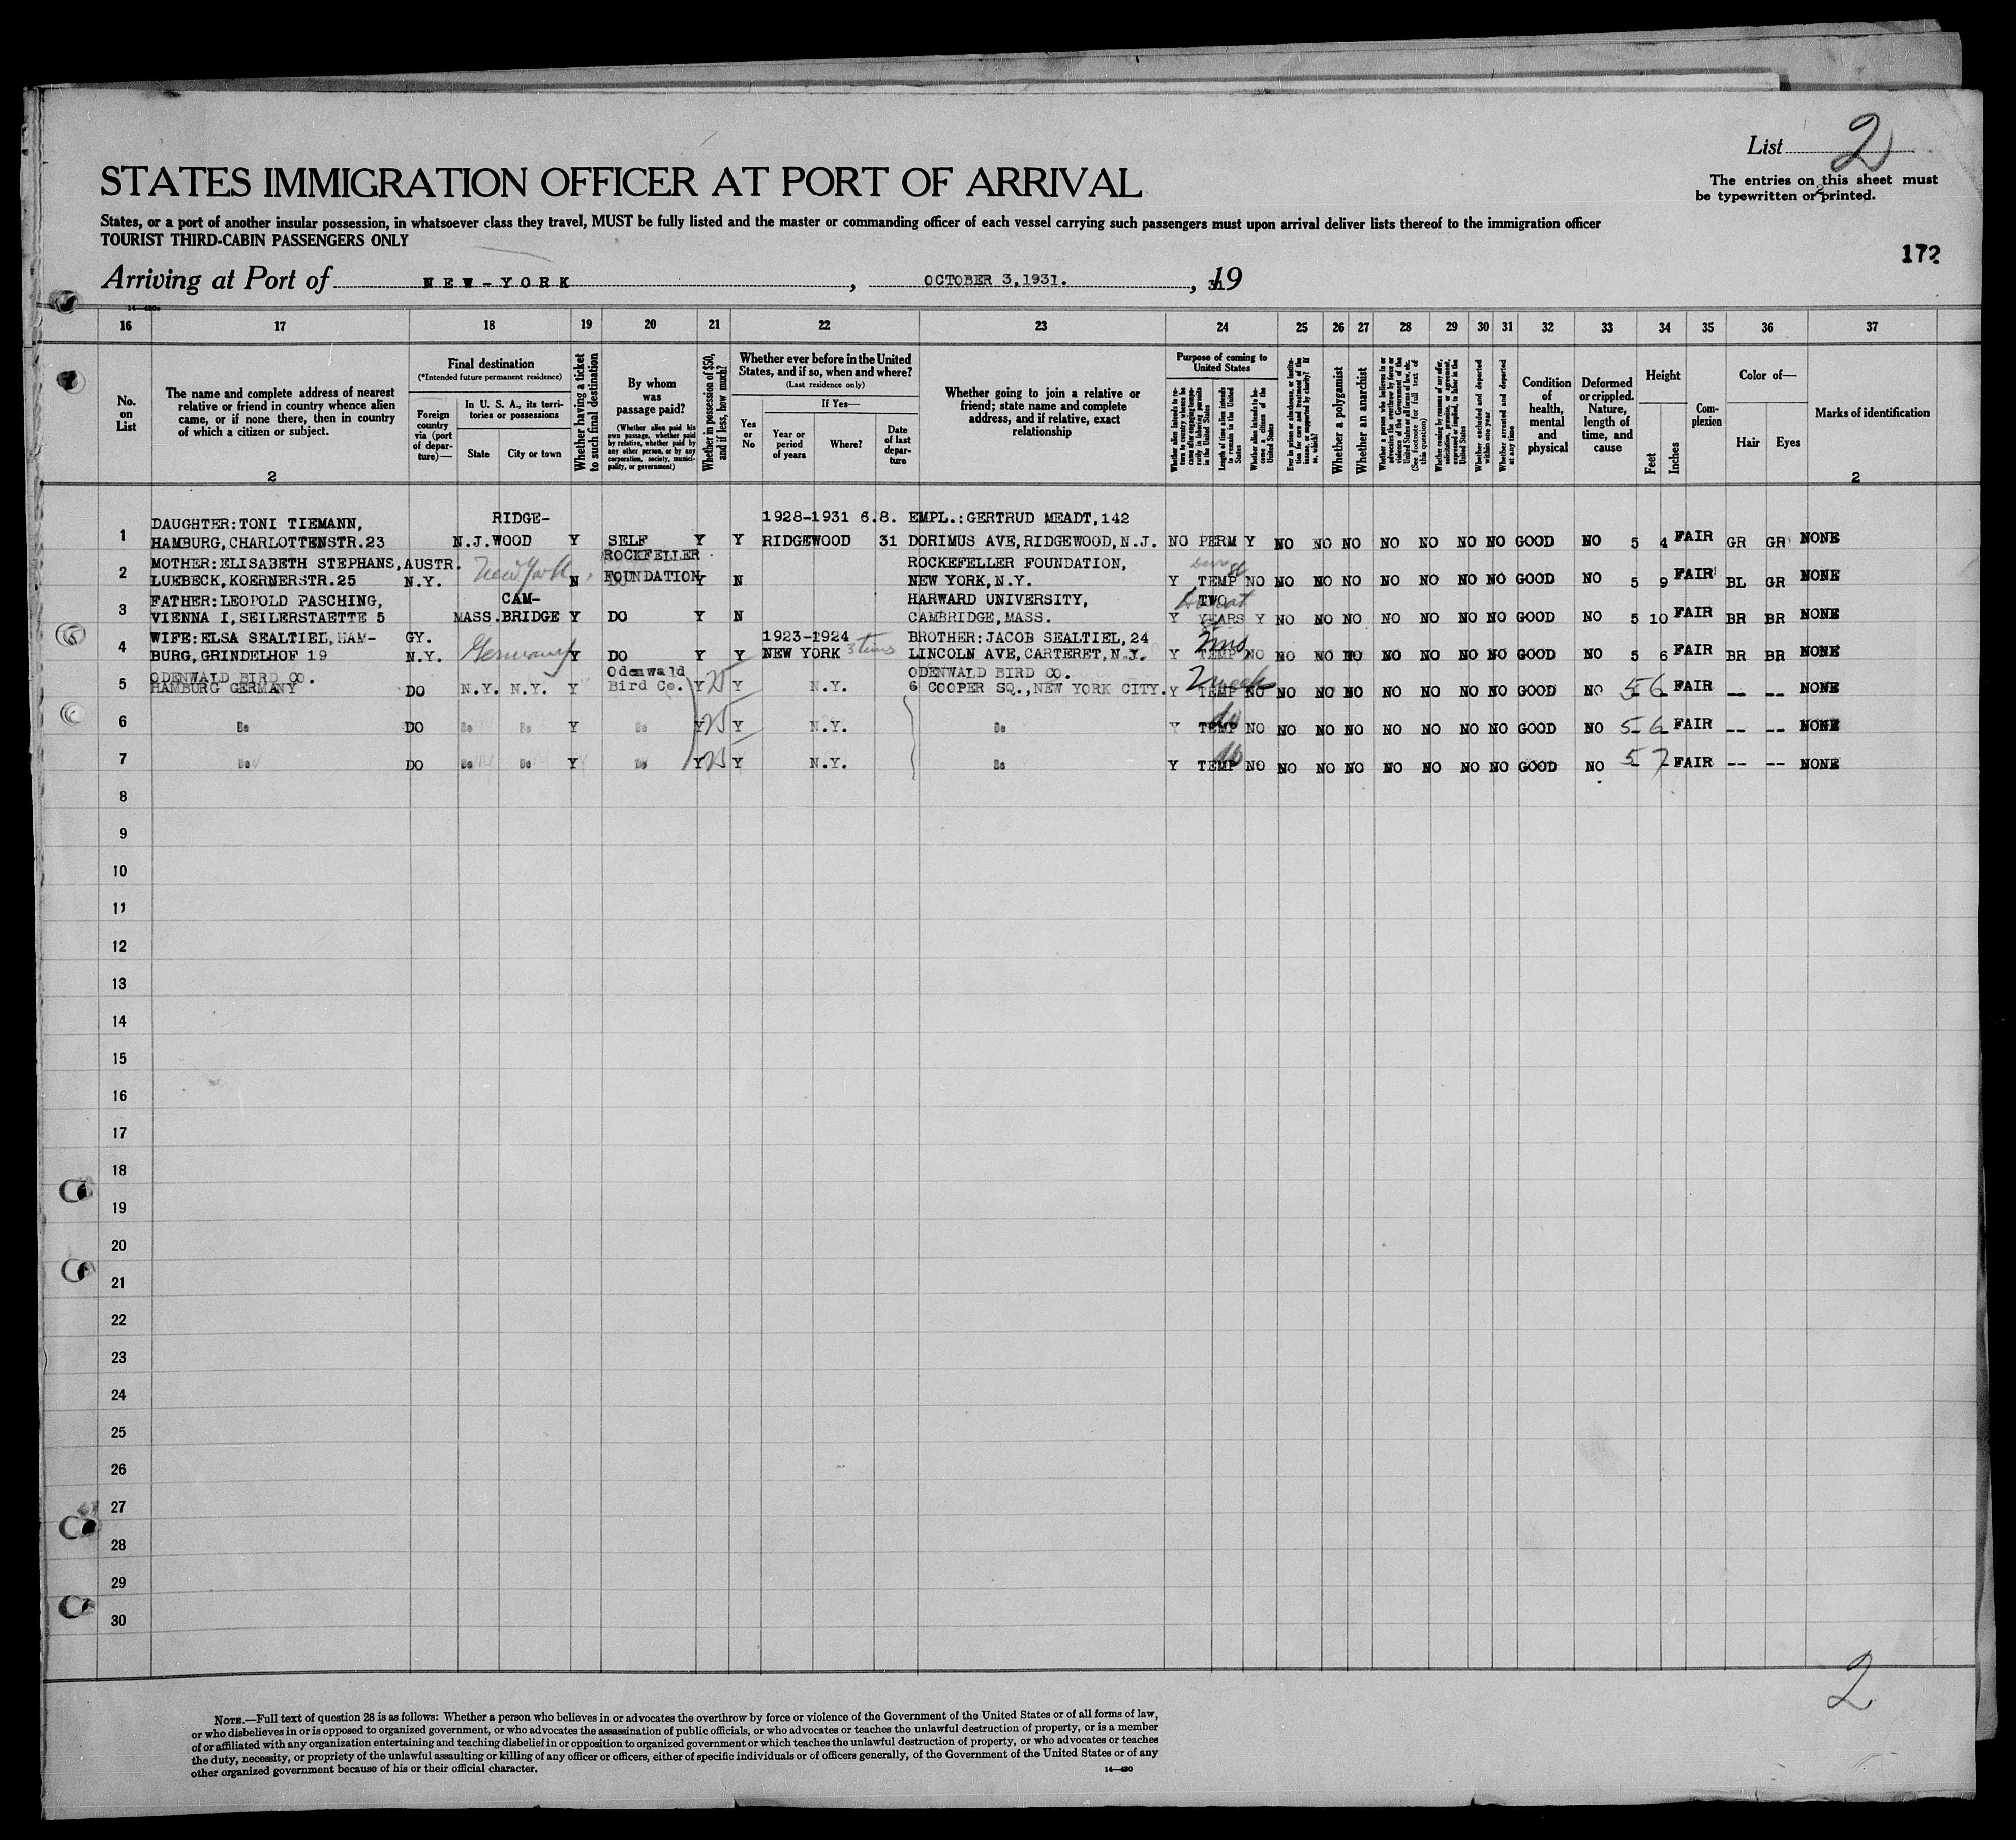 List 2
STATES IMMIGRATION OFFICER AT PORT OF ARRIVAL
The entries on this sheet must
be typewritten or printed.
2
States, or a port of another insular possession, in whatsoever class they travel, MUST be fully listed and the master or commanding officer of each vessel carrying such passengers must upon arrival deliver lists thereof to the immigration officer
TOURIST THIRD-CABIN PASSENGERS ONLY
172
Arriving at Port of NEW-YORK, OCTOBER 3,1931., 1931
16 17 18 19 20 21 22 23 24 25 26 27 28 29 30 31 32 33 34 35 36 37
No. on List
The name and complete address of nearest
relative or friend in country whence alien
came, or if none there, then in country
of which a citizen or subject.
2
Final destination
(*Intended future permanent residence)
Foreign country via (port of departure)—
In U. S. A., its territories or possessions
State
City or town
Whether having a ticket to such final destination
By whom was passage paid?
(Whether alien paid his own passage, whether paid by relative, whether paid by any other person, or by any corporation, society, municipality, or government)
Whether in possession of $50, and if less, how much?
Whether ever before in the United
States, and if so, when and where?
(Last residence only)
Yes or No
If Yes—
Year or period of years
Where?
Date of last departure
Whether going to join a relative or
friend; state name and complete
address, and if relative, exact
relationship
Purpose of coming to United States
Whether alien intends to return to country whence he came after engaging temporarily in laboring pursuits in the United States
Length of time alien intends to remain in the United States
Whether alien intends to become a citizen of the United States
Ever in prison or almshouse, or institution for care and treatment of the insane, or supported by charity? If so, which?
Whether a polygamist
Whether an anarchist
Whether a person who believes in or advocates the overthrow by force or violence of the Government of the United States or all forms of law, etc. (See footnote for full text of this question)
Whether coming by reasons of any offer, solicitation, promise, or agreement, expressed or implied, to labor in the United States
Whether excluded and deported within one year
Whether arrested and deported at any time
Condition of health, mental and physical
Deformed or crippled. Nature, length of time, and cause
Height
Feet
Inches
Complexion
Color of—
Hair
Eyes
Marks of identification
2
1 DAUGHTER:TONI TIEMANN, RIDGE- 1928-1931 6.8. EMPL.:GERTRUD MEADT,142
HAMBURG,CHARLOTTENSTR.23 N.J.WOOD Y SELF Y Y RIDGEWOOD 31 DORIMUS AVE,RIDGEWOOD,N.J. NO PERM Y NO NO NO NO NO NO NO GOOD NO 5 4 FAIR GR GR NONE
2 MOTHER:ELISABETH STEPHANS,AUSTR. New York ROCKFELLER ROCKEFELLER FOUNDATION,
LUEBECK,KOERNERSTR.25 N.Y. N FOUNDATION Y N NEW YORK,N.Y. Y TEMP NO NO NO NO NO NO NO NO GOOD NO 5 9 FAIR BL GR NONE
3 FATHER:LEOPOLD PASCHING, CAM- HARWARD UNIVERSITY, TWO
VIENNA I,SEILERSTAETTE 5 MASS.BRIDGE Y DO Y N CAMBRIDGE,MASS. Y YEARS Y NO NO NO NO NO NO NO GOOD NO 5 10 FAIR BR BR NONE
4 WIFE:ELSA SEALTIEL,HAM- GY. Germany 1923-1924 3 times BROTHER:JACOB SEALTIEL,24 2mo
BURG,GRINDELHOF 19 N.Y. Y DO Y Y NEW YORK LINCOLN AVE,CARTERET,N.J. Y TEMP NO NO NO NO NO NO NO NO GOOD NO 5 6 FAIR BR BR NONE
5 ODENWALD BIRD CO. Odenwald ODENWALD BIRD CO. 2 week
HAMBURG GERMANY DO N.Y. N.Y. Y Bird Co. Y 25 Y N.Y. 6 COOPER SQ.,NEW YORK CITY. Y TEMP NO NO NO NO NO NO NO NO GOOD NO 5 6 FAIR -- -- NONE
6 Do DO Do Do Y Do Y 25 Y N.Y. Do Y TEMP do NO NO NO NO NO NO NO NO GOOD NO 5 6 FAIR -- -- NONE
7 Do DO Do Do Y Do Y 25 Y N.Y. Do Y TEMP do NO NO NO NO NO NO NO NO GOOD NO 5 7 FAIR -- -- NONE
8
9
10
11
12
13
14
15
16
17
18
19
20
21
22
23
24
25
26
27
28
29
30
2
NOTE.—Full text of question 28 is as follows: Whether a person who believes in or advocates the overthrow by force or violence of the Government of the United States or of all forms of law,
or who disbelieves in or is opposed to organized government, or who advocates the assassination of public officials, or who advocates or teaches the unlawful destruction of property, or is a member
of or affiliated with any organization entertaining and teaching disbelief in or opposition to organized government or which teaches the unlawful destruction of property, or who advocates or teaches
the duty, necessity, or propriety of the unlawful assaulting or killing of any officer or officers, either of specific individuals or of officers generally, of the Government of the United States or of any
other organized government because of his or their official character.
14—430